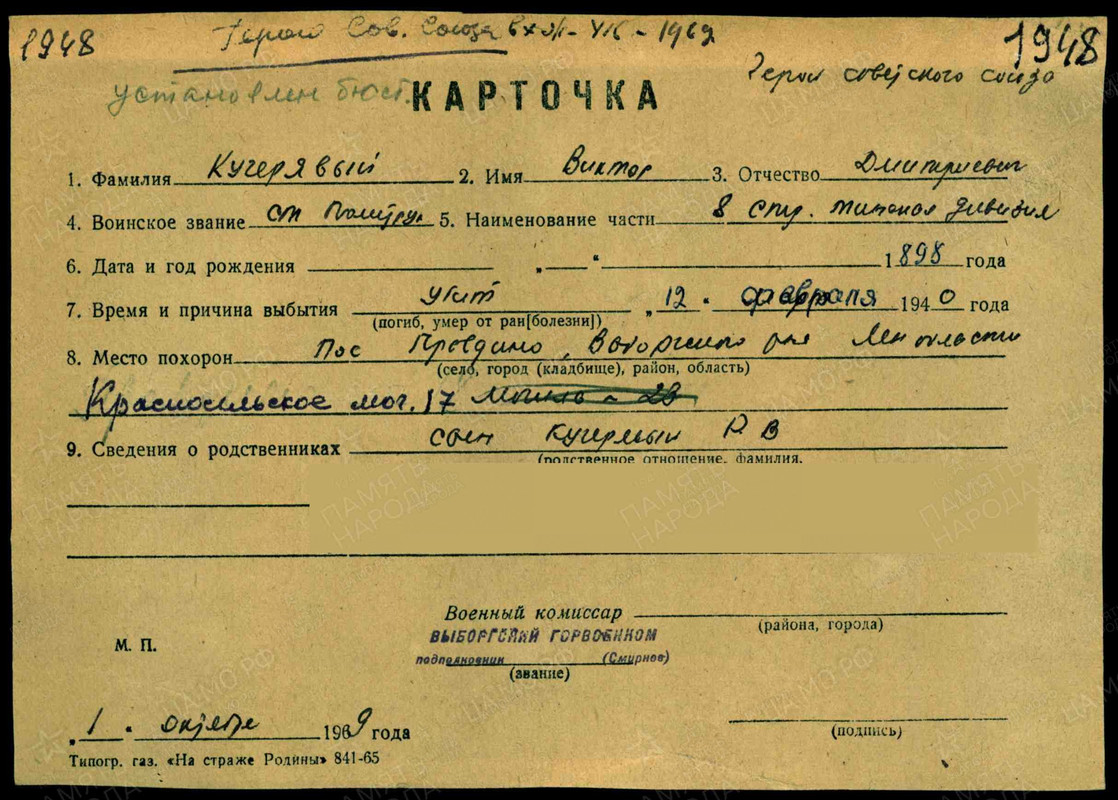 1948 Герой Сов. Союза вх 1948
Герой советского союза
установлен бюст.
КАРТОЧКА
1. Фамилия Кучерявый 2. Имя Виктор 3. Отчество Дмитриевич
4. Воинское звание ст Политрук 5. Наименование части 8 стр. дивизия
6. Дата и год рождения „ “ 1898 года
7. Время и причина выбытия убит „12“ февраля 1940 года
(погиб, умер от ран[болезни])
8. Место похорон Пос Правдино, Выборгского р-на Лен области
(село, город (кладбище), район, область)
Красносельское мог. 17
9. Сведения о родственниках сын Кучерявый В
(родственное отношение, фамилия,
Военный комиссар
(района, города)
ВЫБОРГСКИЙ ГОРВОЕНКОМ
М. П.
подполковник (Смирнов)
(звание)
„1“ октября 1969 года
(подпись)
Типогр. газ. «На страже Родины» 841-65